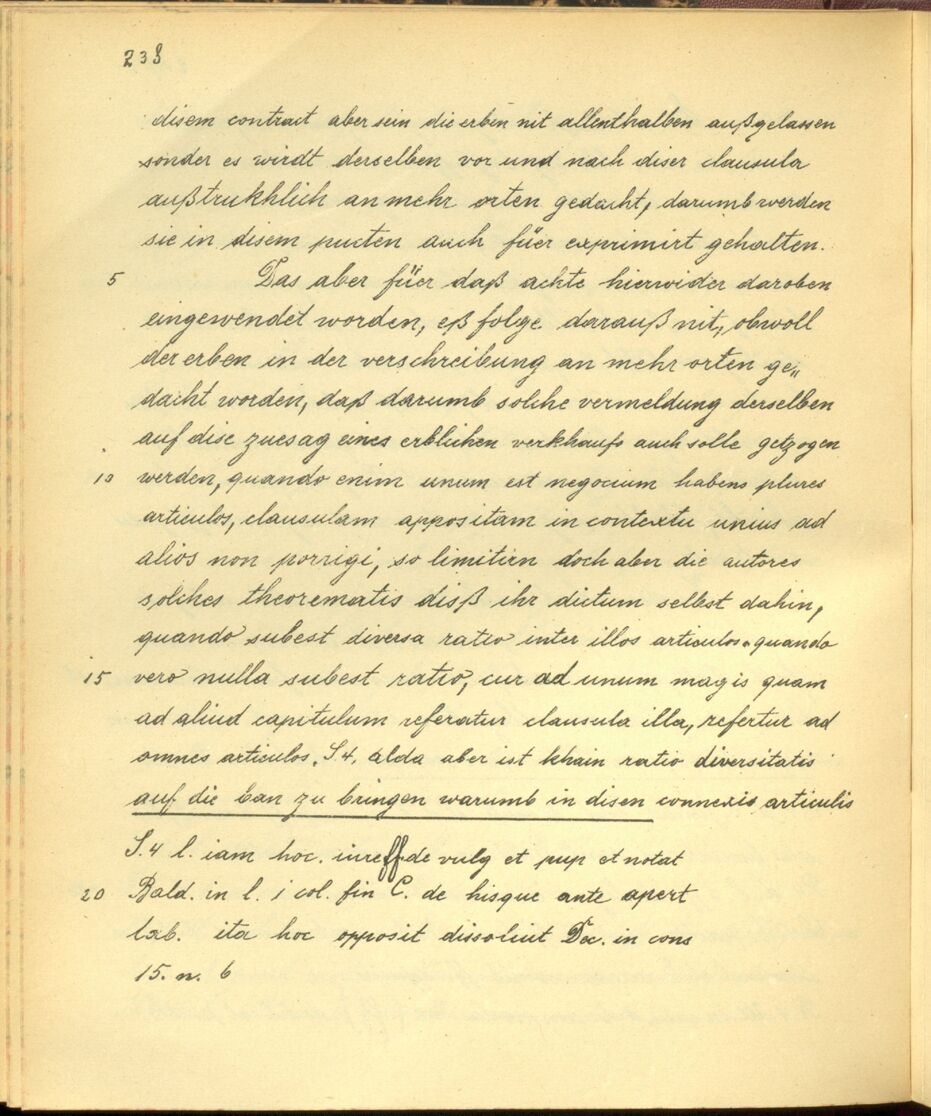 238
disem contract aber sein die erben nit allenthalben außgelassen
sonder es wirdt derselben vor und nach diser clausula
außtrukhlich an mehr orten gedacht, darumb werden
sie in disem puncten auch füer exprimirt gehalten.
5 Das aber füer daß achte hierwider daroben
eingewendet worden, eß folge darauß nit, obwoll
der erben in der verschreibung an mehr orten ge„
dacht worden, daß darumb solche vermeldung derselben
auf dise zuesag eines erblichen verkhaufs auch solle getzogen
10 werden, quando enim unum est negocium habens plures
articulos, clausulam appositam in contextu unius ad
alios non porrigi, so limitirn doch aber die autores
solches theorematis diß ihr dictum selbst dahin,
quando subest diversa ratio inter illos articulos. quando
15 vero nulla subest ratio, cur ad unum magis quam
ad aliud capitulum referatur clausula illa, refertur ad
omnes articulos. S. 4. alda aber ist khain ratio diversitatis
auf die ban zu bringen warumb in disen connexis articulis
S. 4 l. iam hoc. iure ff de vulg et pup et notat
20 Bald. in l. i col. fin C. de hisque ante apert
tab. ita hoc opposit dissoluit Dec. in cons
15. n. 6